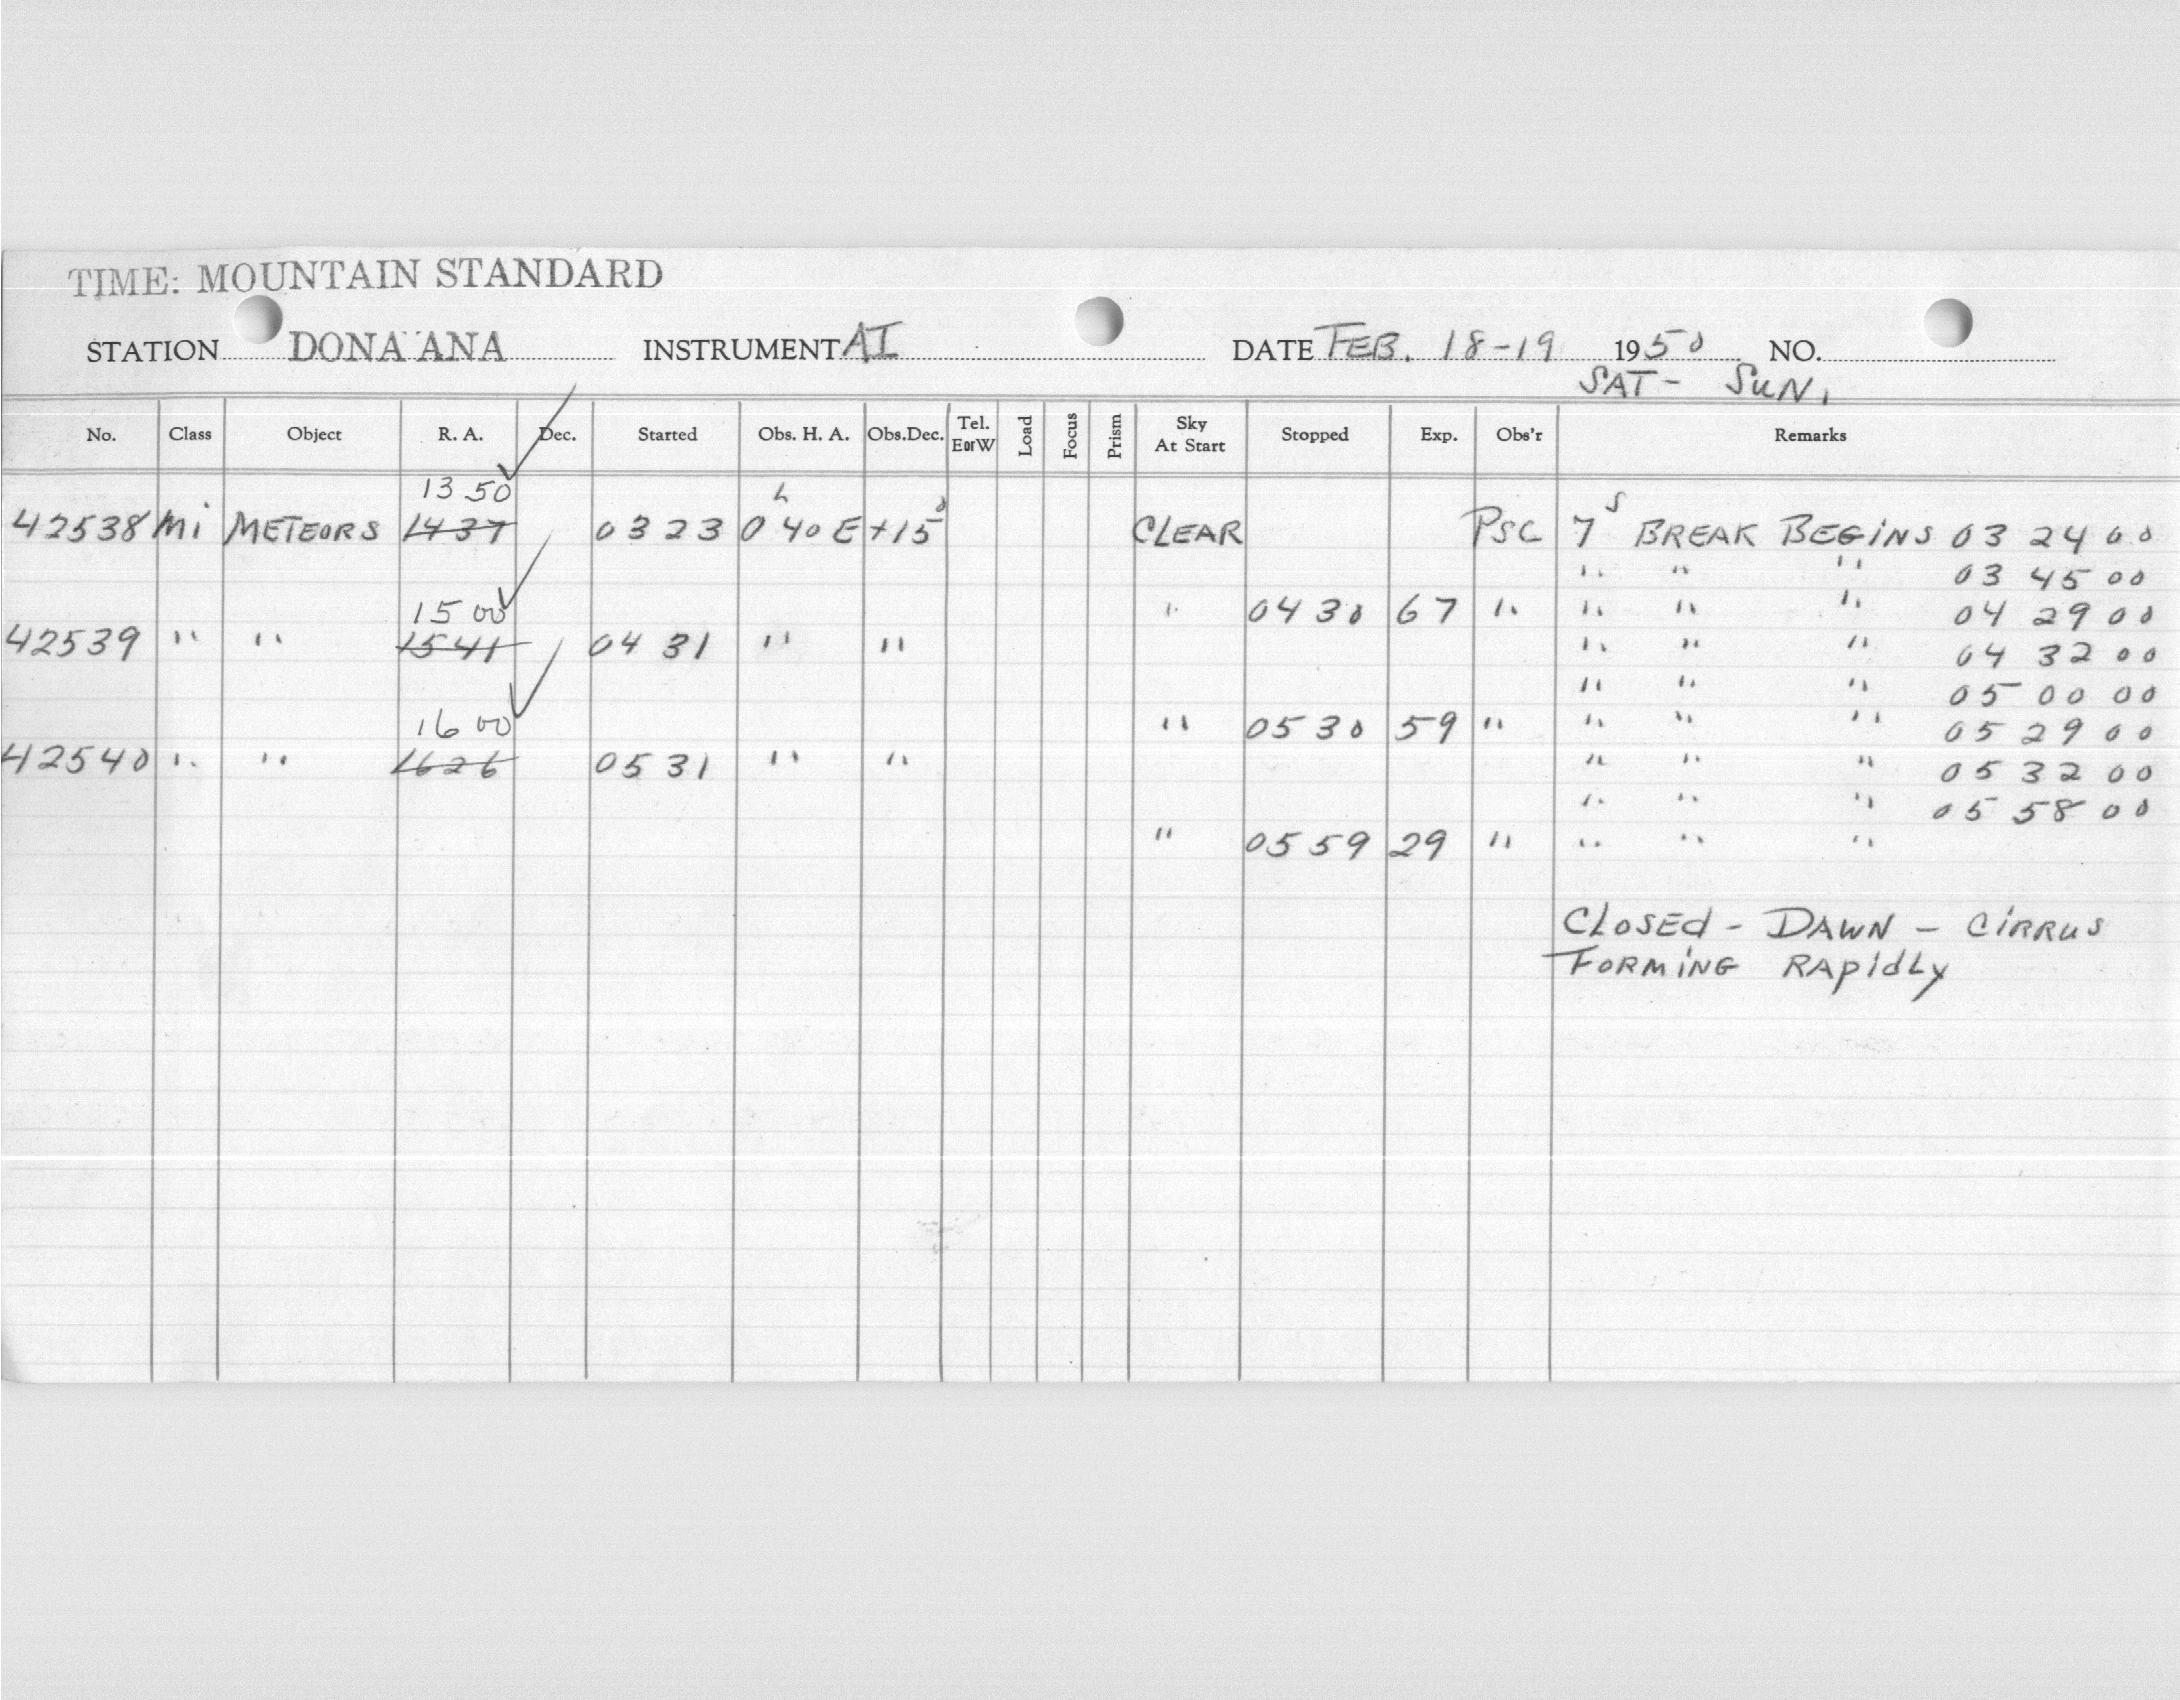 TIME: MOUNTAIN STANDARD
STATION DONA ANA INSTRUMENT AI DATE FEB. 18-19 1950 NO.
SAT- SUN.
No. Class Object R. A. Dec. Started Obs. H. A. Obs.Dec. Tel. EorW Load Focus Prism Sky At Start Stopped Exp. Obs'r Remarks
13 50 h
42538 Mi METEORS 1437 0323 0 40 E +15° CLEAR PSC 7s BREAK BEGINS 03 24 00
" " " 03 45 00
15 00 " 0430 67 " " " " 04 29 00
42539 " " 1541 0431 " " " " " 04 32 00
" " " 05 00 00
16 00 " 0530 59 " " " " 05 29 00
42540 " " 1626 0531 " " " " " 05 32 00
" " " 05 58 00
" 0559 29 " " " "
CLOSEd - DAWN - CiRRUS
FORMiNG RApidLy